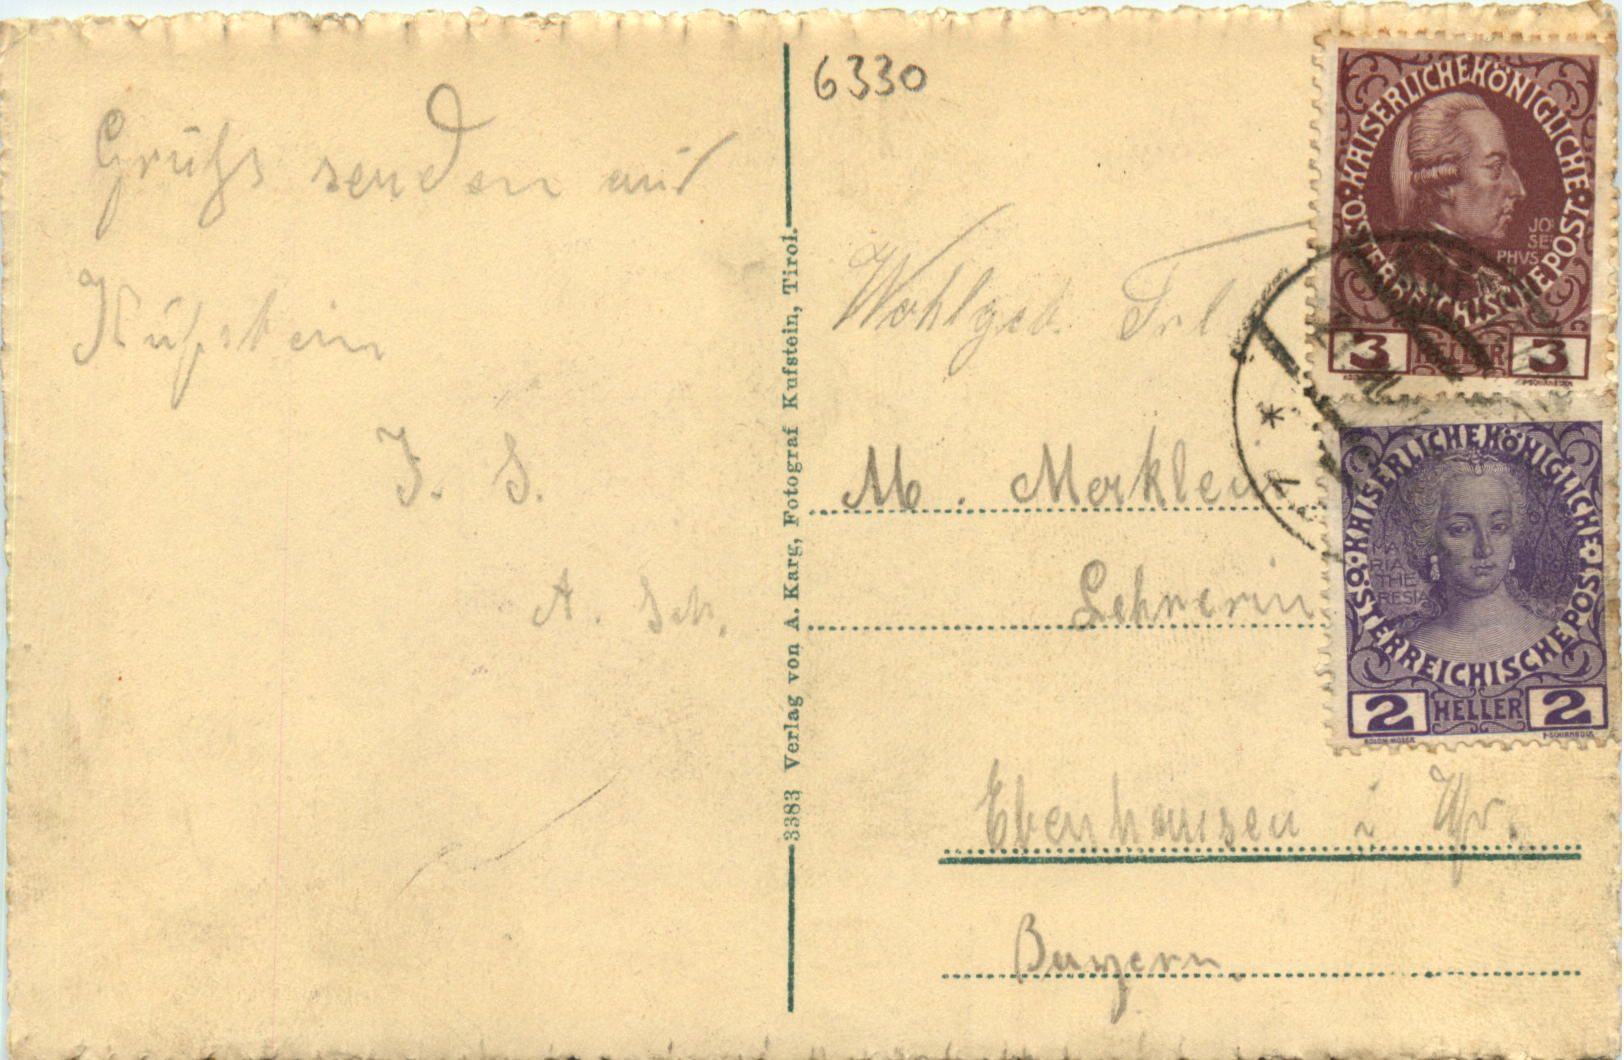 Grüße senden aus
Kufstein
J. S.
A. Sch.
3383 Verlag von A. Karg, Fotograf Kufstein, Tirol.
6330
Wohlgeb. Frl
M. Merklein
Lehrerin
Ebenhausen i Ufr.
Bayern.
KAISERLICHE KÖNIGLICHE
ÖSTERREICHISCHE POST
JO
SE
PHVS
3 HELLER 3
KAISERLICHE KÖNIGLICHE
ÖSTERREICHISCHE POST
MA
RIA
THE
RESIA
2 HELLER 2
KOLOM·MOSER
F·SCHIRNBÖCK